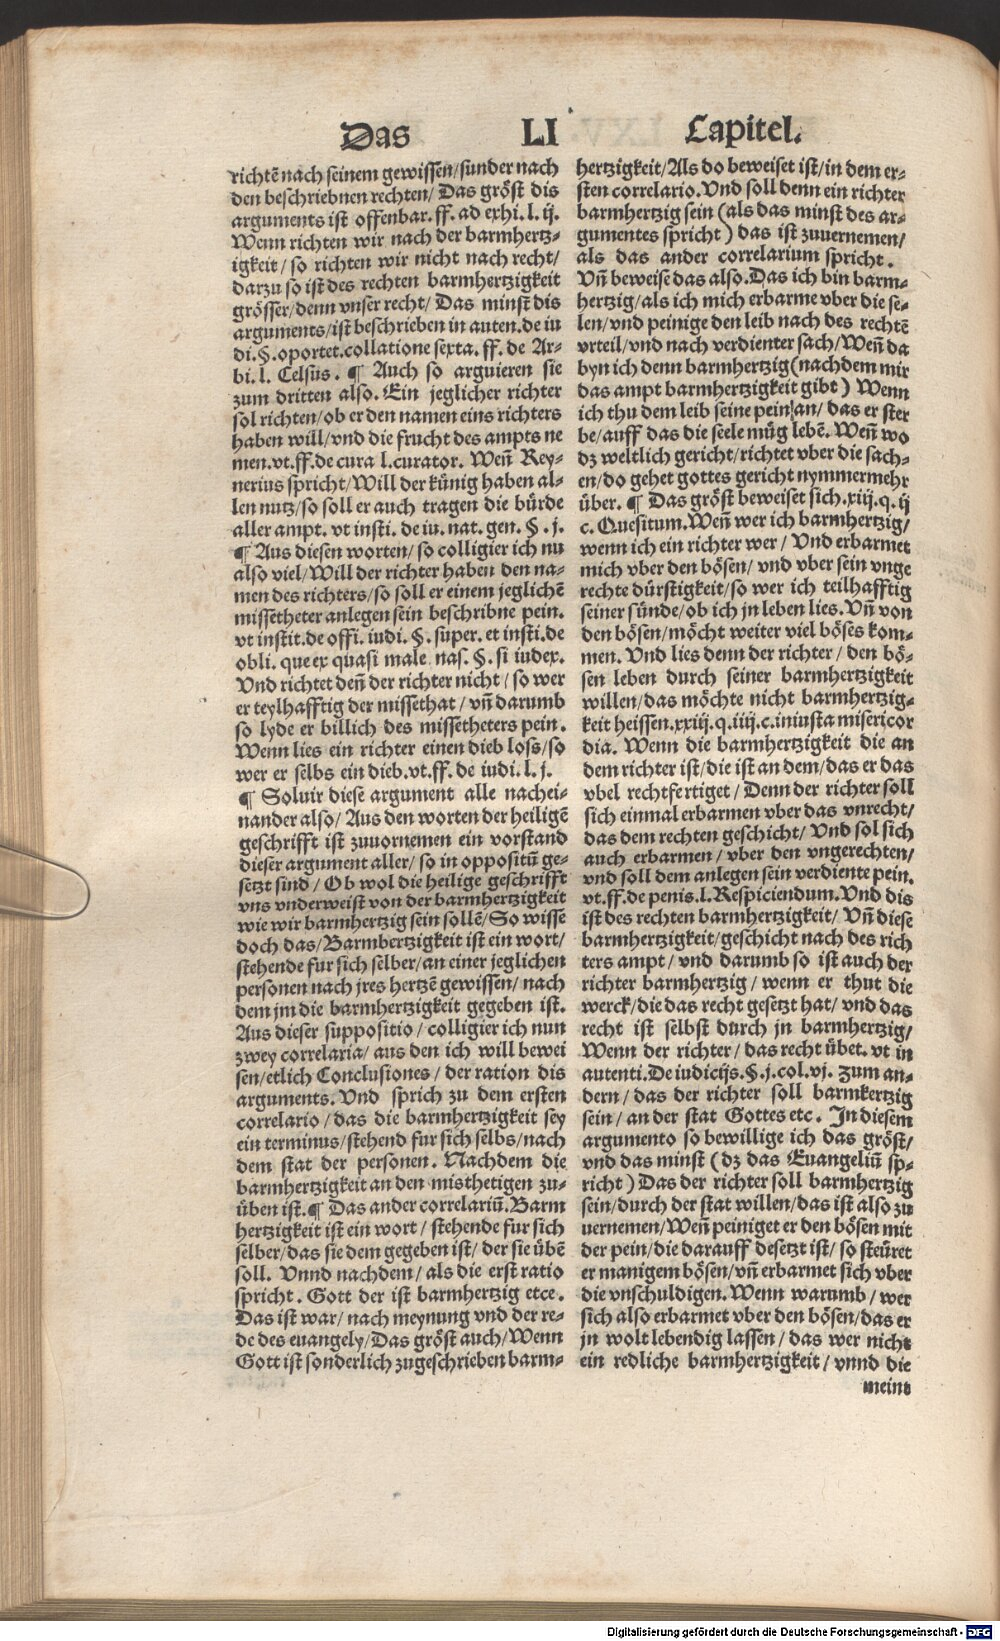 Das LI Capitel.
richtē nach seinem gewissen/sunder nach
den beschriebnen rechten/ Das gröst dis
arguments ist offenbar. ff. ad exhi. l. ij.
Wenn richten wir nach der barmhertz-
igkeit/ so richten wir nicht nach recht/
darzu so ist des rechten barmhertzigkeit
grösser/denn vnser recht/ Das minst dis
arguments/ist beschrieben in auten.de iu
di. §. oportet.collatione sexta. ff. de Ar-
bi. l. Celsus. ¶ Auch so arguieren sie
zum dritten also. Ein jeglicher richter
sol richten/ob er den namen eins richters
haben will/vnd die frucht des ampts ne
men.vt.ff.de cura l.curator. Weñ Rey-
nerius spricht/Will der künig haben al-
len nutz/so soll er auch tragen die bürde
aller ampt. vt insti. de iu. nat. gen. §. j.
¶ Aus diesen worten/ so colligier ich nu
also viel/Will der richter haben den na-
men des richters/so soll er einem jeglichē
missetheter anlegen sein beschribne pein.
vt instit.de offi. iudi. §. super. et insti.de
obli. que ex quasi male. nas. §. si iudex.
Vnd richtet deñ der richter nicht/ so wer
er teylhafftig der missethat/ vñ darumb
so lyde er billich des missetheters pein.
Wenn lies ein richter einen dieb loss/so
wer er selbs ein dieb.vt.ff. de iudi. l. j.
¶ Soluir diese argument alle nachei-
nander also/ Aus den worten der heiligē
geschrifft ist zuuornemen ein vorstand
dieser argument aller/ so in oppositū ge-
setzt sind/ Ob wol die heilige geschrifft
vns vnderweist von der barmhertzigkeit
wie wir barmhertzig sein sollē/So wisse
doch das/Barmbertzigkeit ist ein wort/
stehende fur sich selber/an einer jeglichen
personen nach jres hertzē gewissen/ nach
dem jm die barmhertzigkeit gegeben ist.
Aus dieser suppositio/ colligier ich nun
zwey correlaria/ aus den ich will bewei
sen/etlich Conclusiones/ der ration dis
arguments. Vnd sprich zu dem ersten
correlario/ das die barmhertzigkeit sey
ein terminus/stehend fur sich selbs/nach
dem stat der personen. Nachdem die
barmhertzigkeit an den misthetigen zu-
üben ist.¶ Das ander correlariū. Barm
hertzigkeit ist ein wort/ stehende fur sich
selber/das sie dem gegeben ist/ der sie übē
soll. Vnnd nachdem/ als die erst ratio
spricht. Gott der ist barmhertzig etce.
Das ist war/ nach meynung vnd der re-
de des euangely/Das gröst auch/Wenn
Gott ist sonderlich zugeschrieben barm-
hertzigkeit/Als do beweiset ist/in dem er-
sten correlario. Vnd soll denn ein richter
barmhertzig sein (als das minst des ar-
gumentes spricht) das ist zuuernemen/
als das ander correlarium spricht.
Vñ beweise das also. Das ich bin barm-
hertzig/als ich mich erbarme vber die se-
len/vnd peinige den leib nach des rechtē
vrteil/vnd nach verdienter sach/Weñ da
byn ich denn barmhertzig(nachdem mir
das ampt barmhertzigkeit gibt) Wenn
ich thu dem leib seine pein an/ das er ster
be/auff das die seele müg lebē. Weñ wo
dz weltlich gericht/richtet vber die sach-
en/do gehet gottes gericht nymmermehr
über. ¶ Das gröst beweiset sich.xiij.q.ij
c. Quesitum.Weñ wer ich barmhertzig/
wenn ich ein richter wer/ Vnd erbarmet
mich vber den bösen/ vnd vber sein vnge
rechte dürstigkeit/so wer ich teilhafftig
seiner sünde/ob ich jn leben lies. Vñ von
den bösen/möcht weiter viel böses kom-
men. Vnd lies denn der richter/ den bö-
sen leben durch seiner barmhertzigkeit
willen/das möchte nicht barmhertzig-
keit heissen.xxiij.q.iiij.c.iniusta misericor
dia. Wenn die barmhertzigkeit die an
dem richter ist/die ist an dem/das er das
vbel rechtfertiget/ Denn der richter soll
sich einmal erbarmen vber das vnrecht/
das dem rechten geschicht/ Vnd sol sich
auch erbarmen/ vber den vngerechten/
vnd soll dem anlegen sein verdiente pein.
vt.ff.de penis.l.Respiciendum.Vnd dis
ist des rechten barmhertzigkeit/ Vñ diese
barmhertzigkeit/geschicht nach des rich
ters ampt/ vnd darumb so ist auch der
richter barmhertzig/ wenn er thut die
werck/die das recht gesetzt hat/ vnd das
recht ist selbst durch jn barmhertzig/
Wenn der richter/ das recht übet. vt in
autenti.De iudicijs.§.j.col.vj. Zum an-
dern/ das der richter soll barmkertzig
sein/ an der stat Gottes etc. In diesem
argumento so bewillige ich das gröst/
vnd das minst (dz das Euangeliū sp-
richt) Das der richter soll barmhertzig
sein/durch der stat willen/das ist also zu
uernemen/Weñ peiniget er den bösen mit
der pein/die darauff desetzt ist/ so steüret
er manigem bösen/vñ erbarmet sich vber
die vnschuldigen. Wenn warumb/ wer
sich also erbarmet vber den bösen/das er
jn wolt lebendig lassen/ das wer nicht
ein redliche barmhertzigkeit/ vnnd die
meint
Digitalisierung gefördert durch die Deutsche Forschungsgemeinschaft - DFG